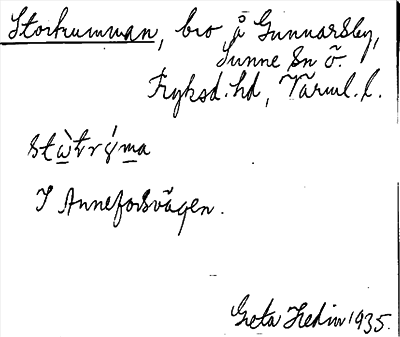 Storkumman, bro å Gunnarsby,
Sunne sn ö.
Fryksd. hd, Värml. l.
stὰtrýma
I Anneforsvägen.
Greta Hedin 1935.